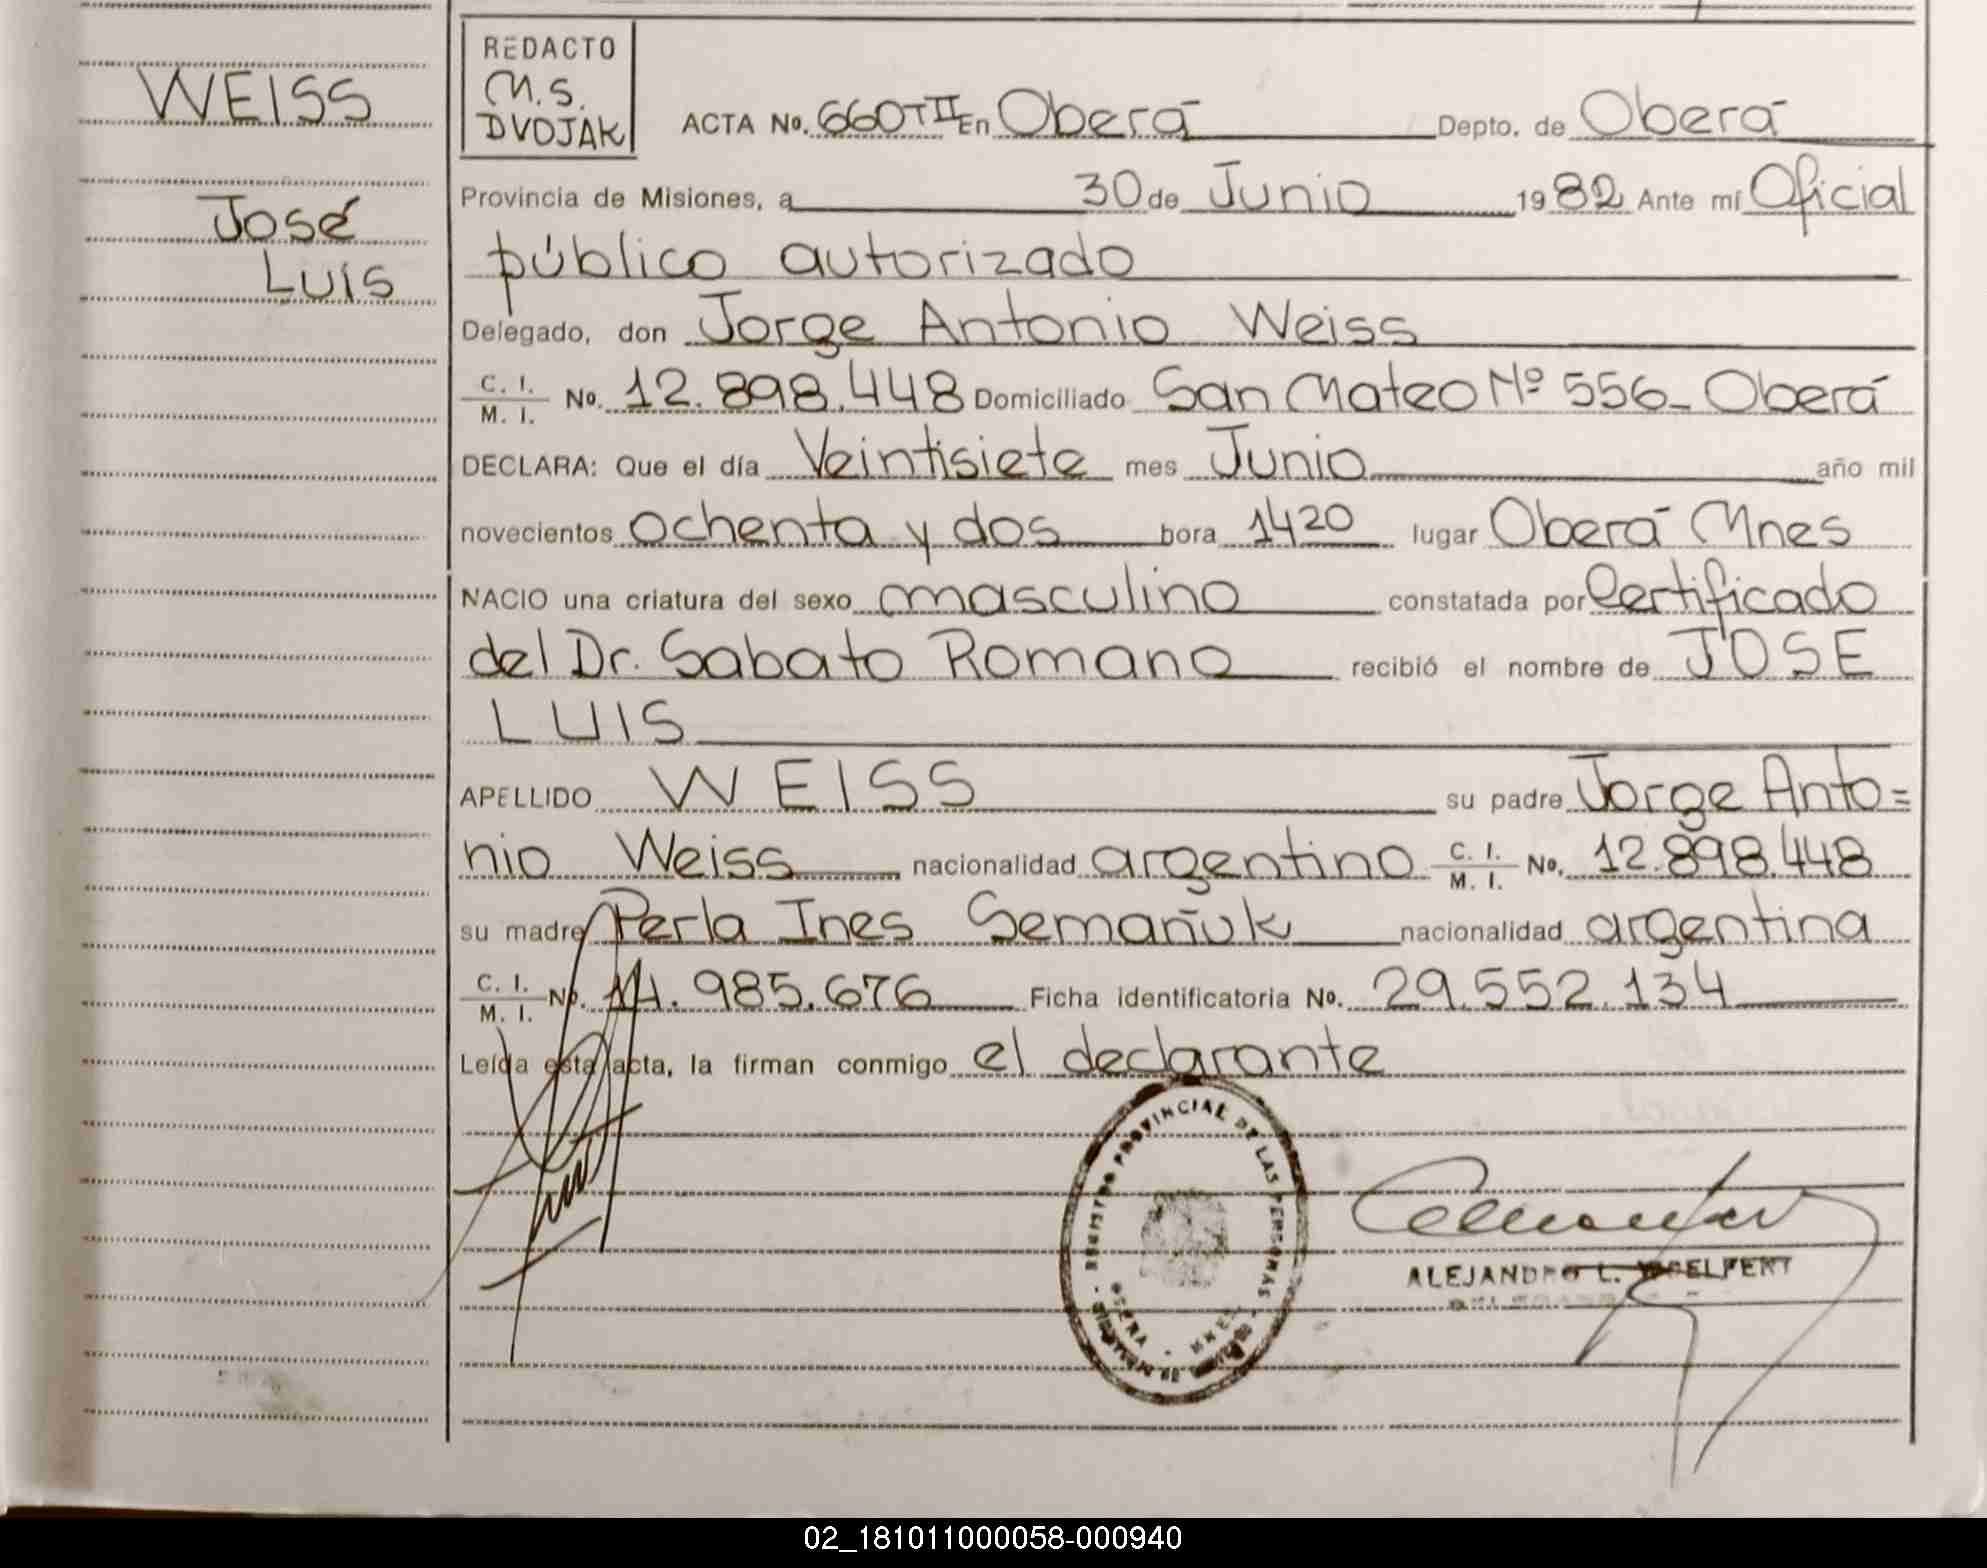 WEISS
José
Luís
REDACTO
M.S.
DVOJAK
ACTA No. 660 T II En Oberá Depto. de Oberá
Provincia de Misiones, a 30 de Junio 1982 Ante mí Oficial
público autorizado
Delegado, don Jorge Antonio Weiss
C. I. M. I. No. 12.898.448 Domiciliado San Mateo Nº 556_ Oberá
DECLARA: Que el día Veintisiete mes Junio año mil
novecientos ochenta y dos hora 1420 lugar Oberá Mnes
NACIO una criatura del sexo masculino constatada por Certificado
del Dr. Sabato Romano recibió el nombre de JOSE
LUIS
APELLIDO WEISS su padre Jorge Anto=
nio Weiss nacionalidad argentino C. I. M. I. No. 12.898.448
su madre Perla Ines Semañuk nacionalidad argentina
C. I. M. I. No. 14.985.676 Ficha identificatoria No. 29.552.134
Leída esta acta, la firman conmigo el declarante
REGISTRO PROVINCIAL DE LAS PERSONAS
OBERA - MNES
ALEJANDRO L.
02_181011000058-000940